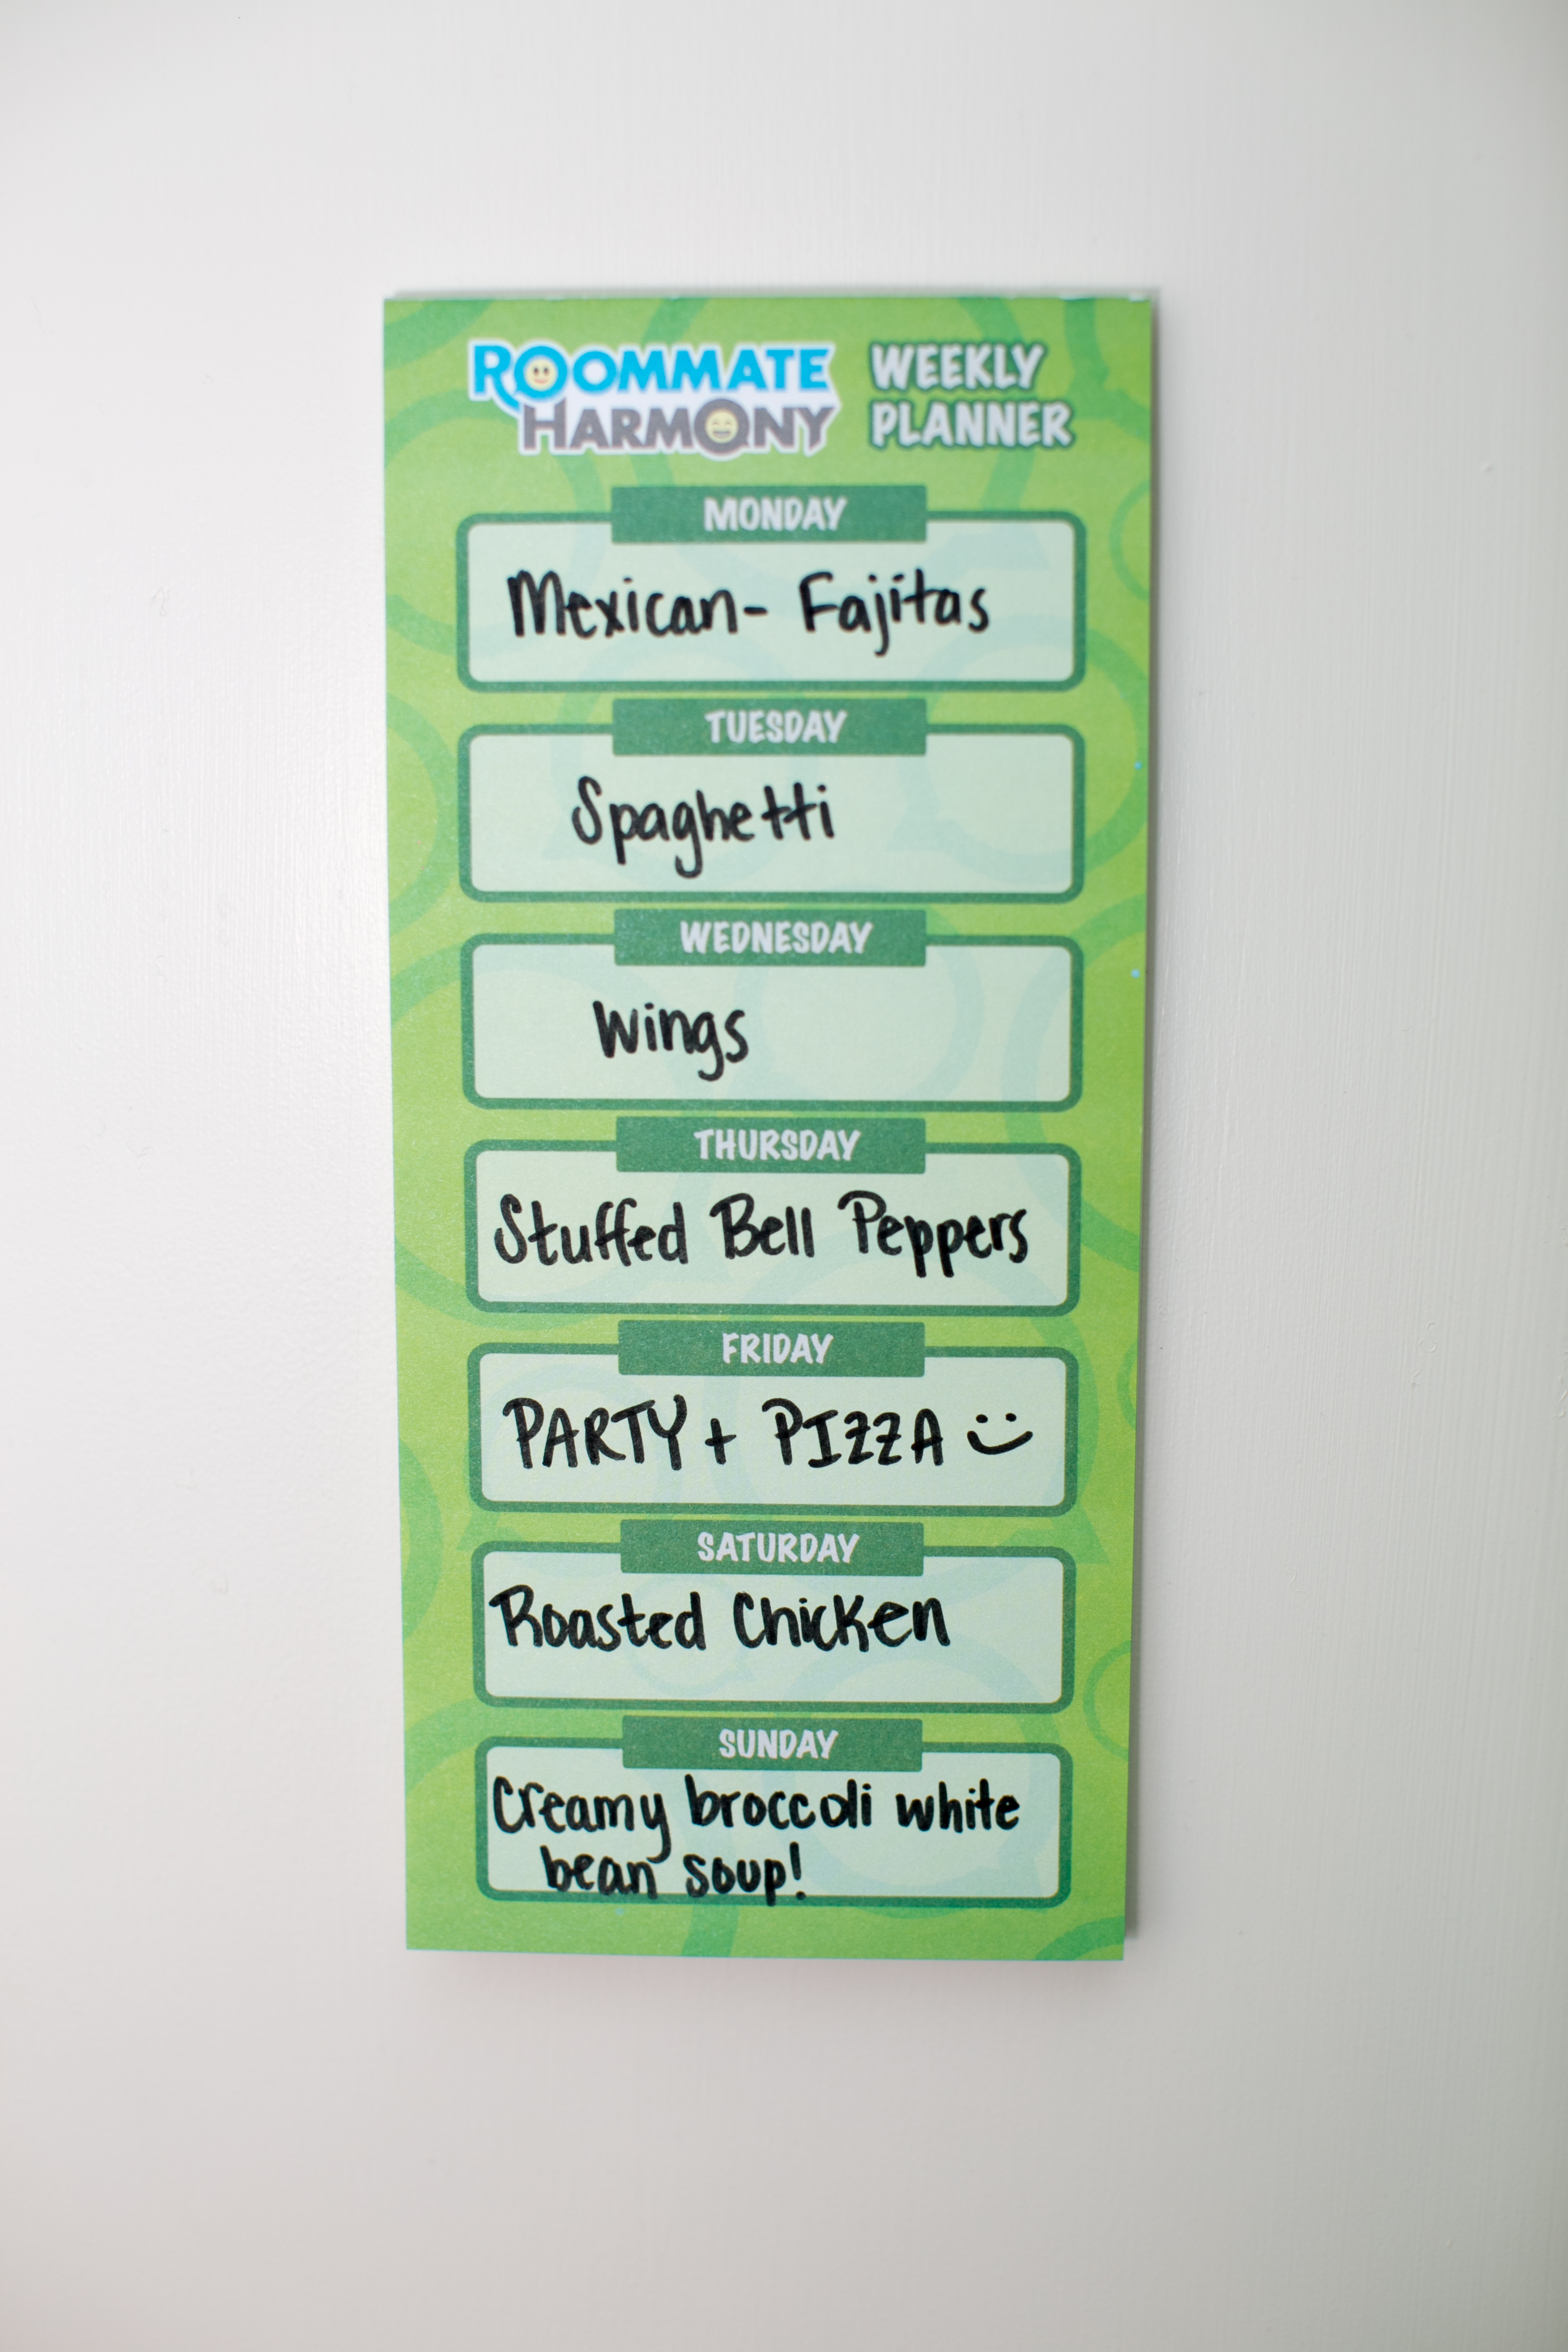 ROOMMATE
HARMONY
WEEKLY
PLANNER
MONDAY
Mexican- Fajitas
TUESDAY
Spaghetti
WEDNESDAY
Wings
THURSDAY
Stuffed Bell Peppers
FRIDAY
PARTY + PIZZA
SATURDAY
Roasted Chicken
SUNDAY
Creamy broccoli white
bean soup!